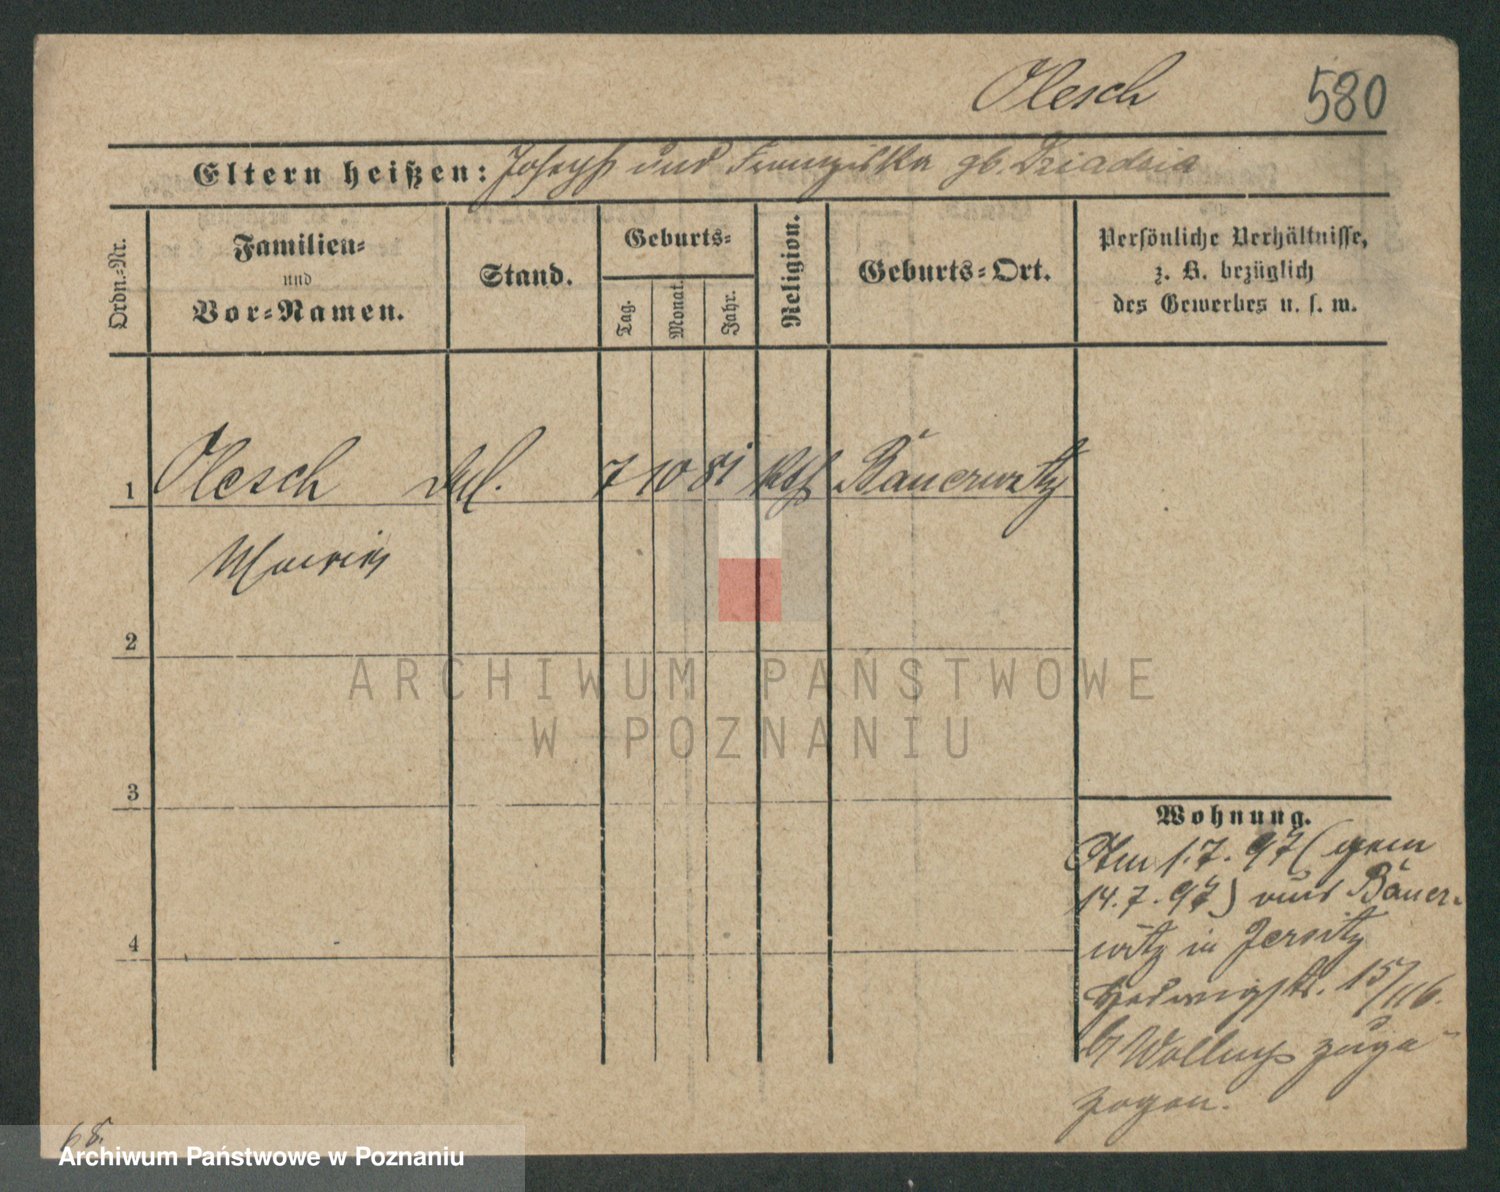 Olesch 580
Eltern heißen: Joseph und Franziska gb. Dziadzia
Ordn.-Nr.
Familien-
und
Vor-Namen.
Stand.
Geburts-
Tag.
Monat.
Jahr.
Religion.
Geburts-Ort.
Persönliche Verhältnisse,
z. B. bezüglich
des Gewerbes u. s. w.
1 Olesch led. 7 10 81 kth Bauerwitz
2
ARCHIWUM PAŃSTWOWE
W POZNANIU
3
Wohnung.
Am 1.7.97 (gem
14.7.97) aus Bauer-
4
witz in Jersitz
Hedwigstr. 15/116.
b/ zuge-
zogen.
68.
Archiwum Państwowe w Poznaniu